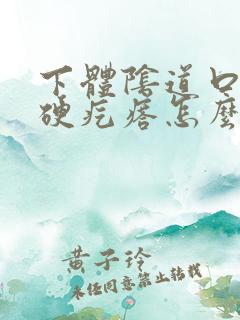 下體陰道口
硬疙瘩怎麼
黃子玲
未经同意禁止转载